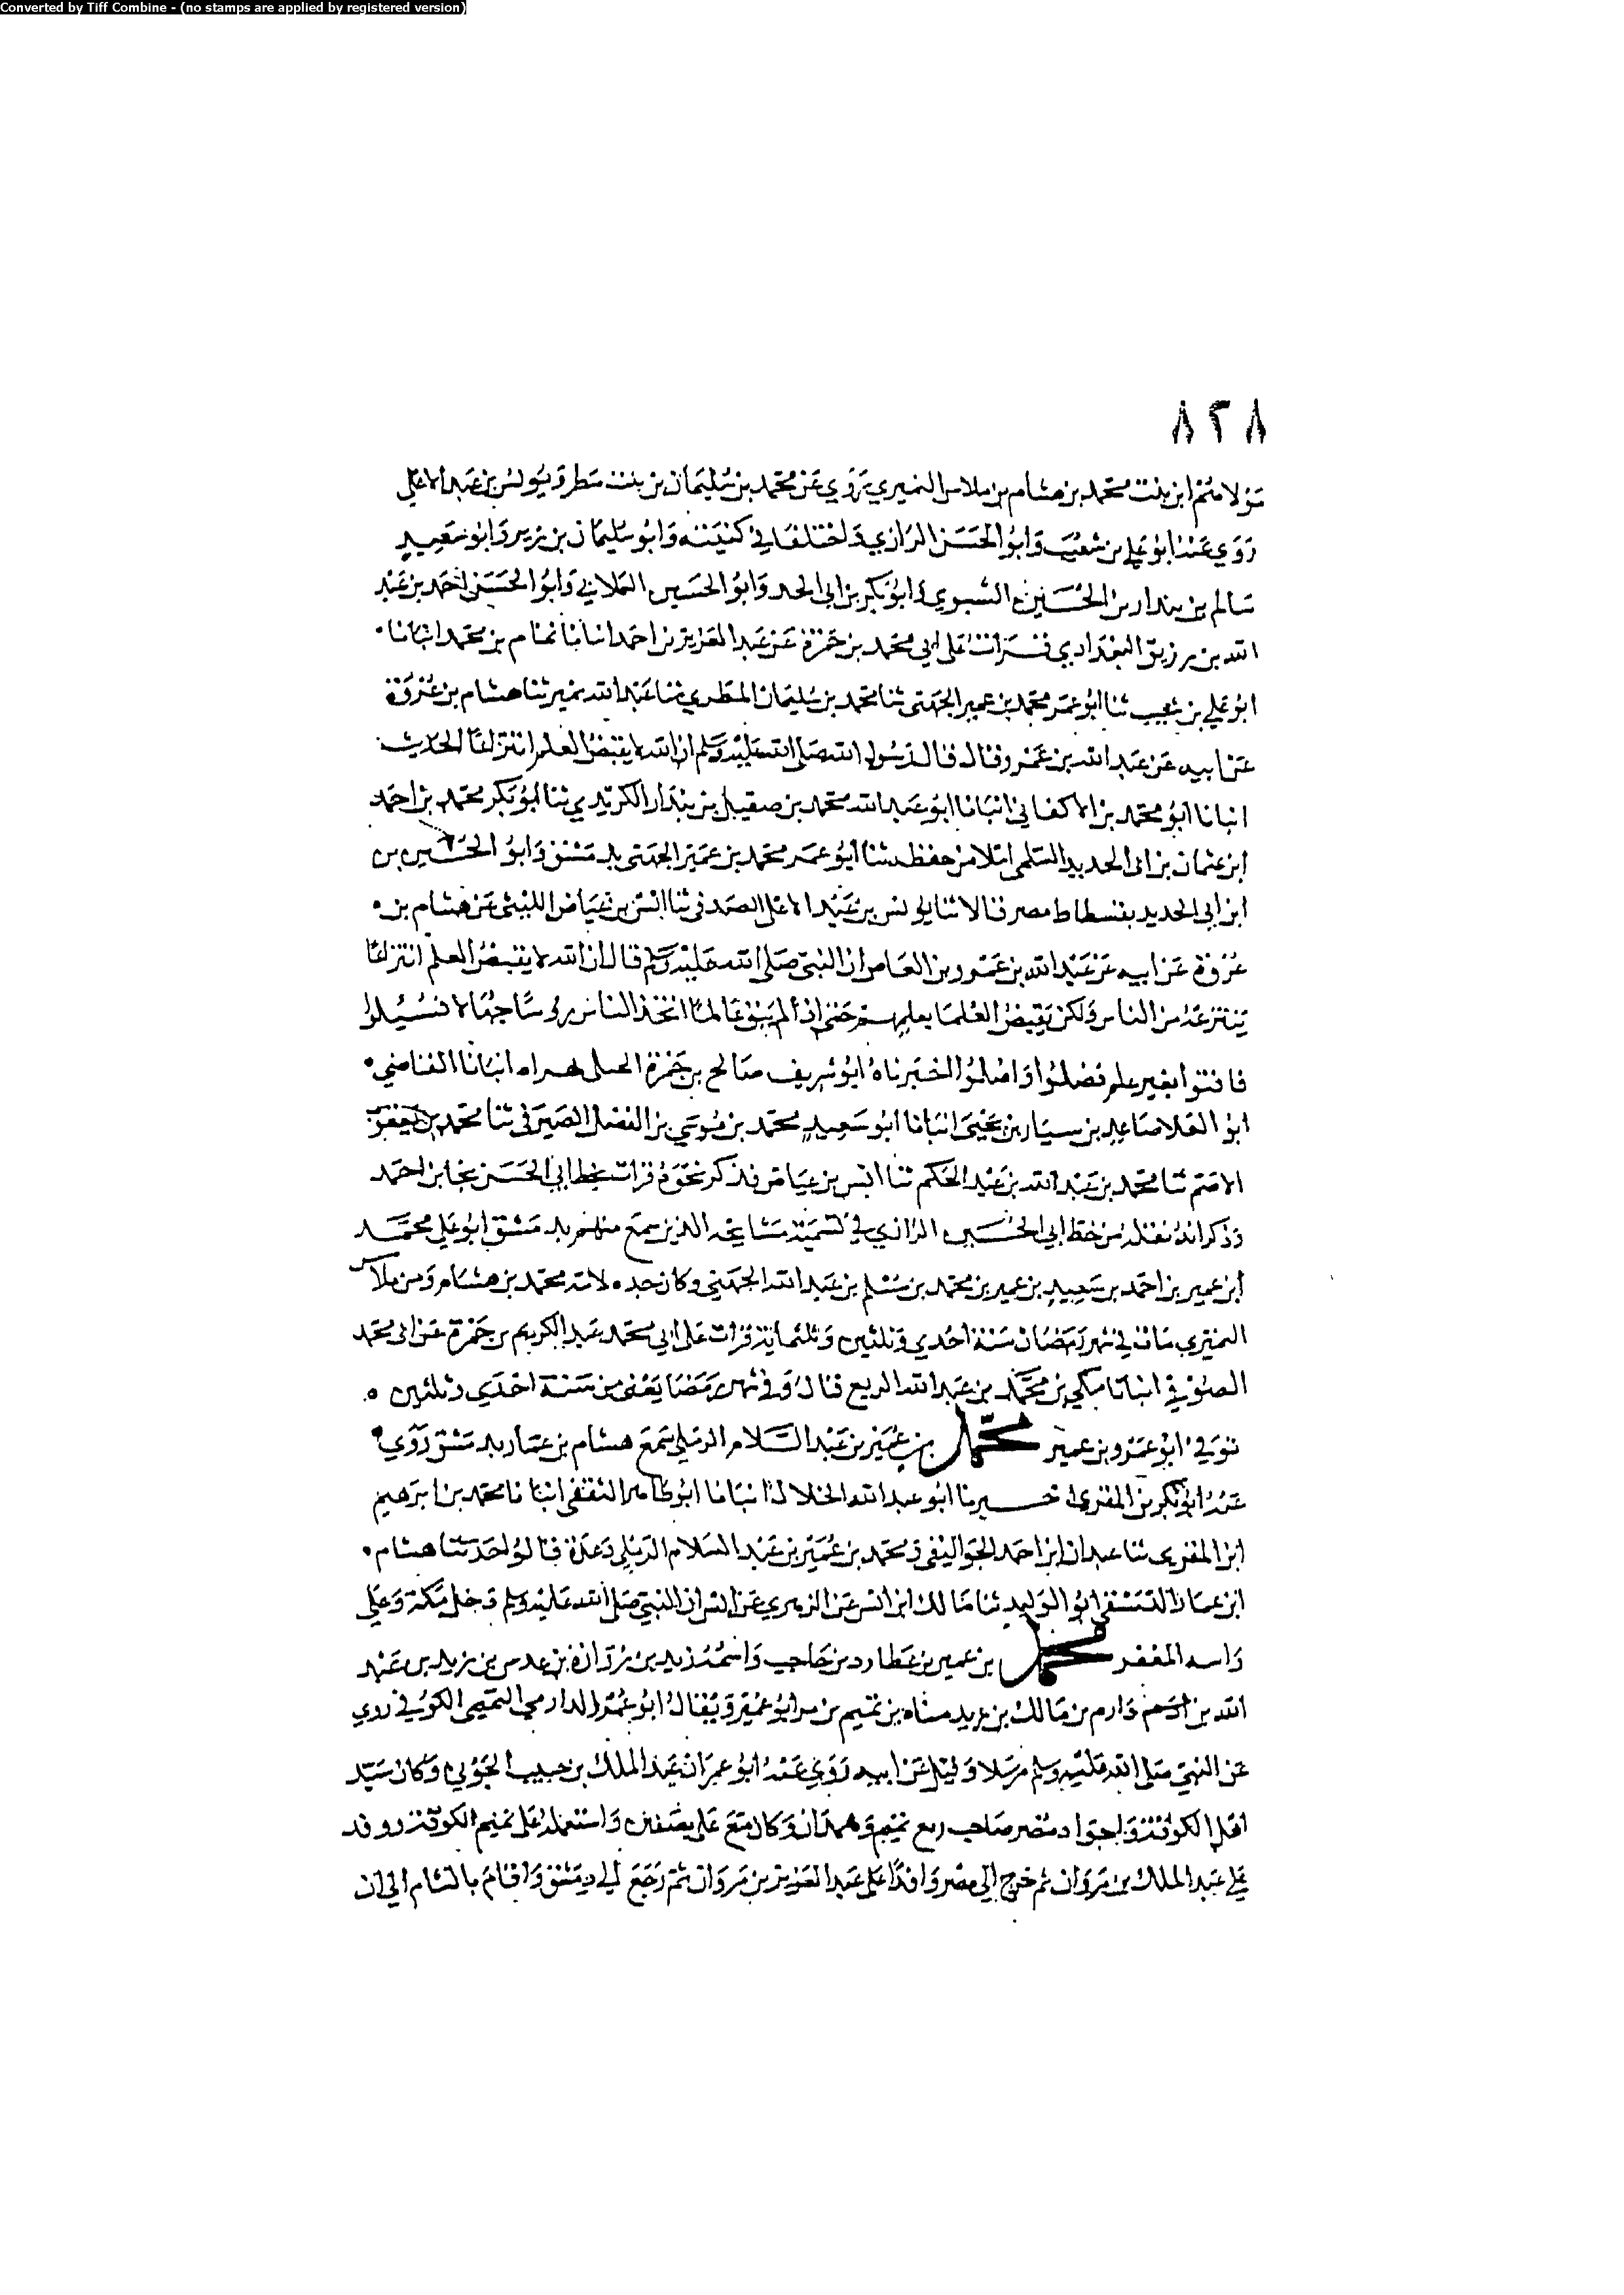 Converted by Tiff Combine - (no stamps are applied by registered version)
٨٢٨
مولاهم ابن بنت محمد بن هشام بن ملاس النميري يروي عن محمد بن سليمان بن بنت مطر ويونس بن عبد الاعلى
روي عنه ابو علي بن شعيب وابو الحسن الرازي واختلفا في كنيته وابو سليمان بن زبر وابو سعيد
سالم بن بندار بن الحسين ابو بكر بن ابي الحديد وابو الحسين وابو الحسن احمد بن عبد
الله بن رزيق البغدادي قرات على ابي محمد بن حمزة عن عبد العزيز بن احمد انبانا تمام بن محمد انبانا
ابو علي بن شعيب ثنا ابو عمر محمد بن عمير الجهني ثنا محمد بن سليمان المطري ثنا عبد الله بن نمير ثنا هشام بن عروة
عن ابيه عن عبد الله بن عمرو قال قال رسول الله صلى الله عليه وسلم ان الله لا يقبض العلم انتزاعا الحديث
انبانا ابو محمد بن الاكفاني انبانا ابو عبد الله محمد بن عقيل بن بندار الكريدي ثنا ابو بكر محمد بن احمد
ابن عثمان بن ابي الحديد السلمي املا من حفظه ثنا ابو عمر محمد بن عمير الجهني بدمشق وابو الحسين بن
ابن ابي الحديد بفسطاط مصر قالا ثنا يونس بن عبد الاعلى الصدفي ثنا انس بن عياض الليثي عن هشام بن
عروة عن ابيه عن عبد الله بن عمرو بن العاص ان النبي صلى الله عليه وسلم قال ان الله لا يقبض العلم انتزاعا
ينتزعه من الناس ولكن يقبض العلما بعلمهم حتى اذا لم يبق عالما اتخذ الناس رؤسا جهالا فسئلوا
فافتوا بغير علم فضلوا واضلوا اخبرناه ابو شريف صالح بن حمزة بهراه انبانا القاضي
ابو العلا صاعد بن سيار بن يحيى انبانا ابو سعيد محمد بن موسي بن الفضل الصيرفي ثنا محمد بن يعقوب
الاصم ثنا محمد بن عبد الله بن عبد الحكم ثنا انس بن عياض فذكر نحوه قرات بخط ابي الحسن نجا بن احمد
وذكر انه نقله من خط ابي الحسين الرازي في تسمية مشايخه الذين سمع منهم بدمشق ابو علي محمد
ابن عمير بن احمد بن سعيد بن عمير بن محمد بن مسلم بن عبد الله الجهني وكان جده لامه محمد بن هشام بن ملاس
النميري مات في شهر رمضان سنة احدي وثلثين وثلثمائة قرات على ابي محمد عبد الكريم بن حمزة عن ابي محمد
الصوفي انبانا مكي بن محمد بن عبد الله الربع قال وفي شهر رمضا يعني من سنة احدي وثلثين ه
توفي ابو عمرو بن عمير محمد بن عمير بن عبد السلام الرملي سمع هشام بن عمار بدمشق روي
عنه ابو بكر بن المقرئ اخبرنا ابو عبد الله الخلال انبانا ابو طاهر الثقفي انبانا محمد بن ابرهيم
ابن المقرى ثنا عبدان ابن احمد الجواليقي ومحمد بن عمير بن عبد السلام الرملي وعدة قالوا حدثنا هشام
ابن عمار الدمشقي ابو الوليد ثنا مالك ابن انس عن الزهري عن انس ان النبي صلى الله عليه وسلم دخل مكة وعلى
راسه المغفر محمد بن عمير بن عطارد بن حاجب واسمه زيد بن زرارة بن عدس بن زيد بن عبد
الله بن دارم بن مالك بن زيد مناه بن تميم بن مر ابو عمير ويقال ابو عمر الدارمي التميمي الكوفي روي
عن النبي صلى الله عليه وسلم مرسلا وقيل عن ابيه روي عنه ابو عمران عبد الملك بن حبيب الجوني وكان سيد
اهل الكوفة واجواد مضر صاحب ربع تميم وهمدان وكان مع علي بصفين واستعمله على تميم الكوفة ووفد
على عبد الملك بن مروان ثم خرج الي مصر وافدا على عبد العزيز بن مروان ثم رجع الي دمشق واقام بالشام الي ان